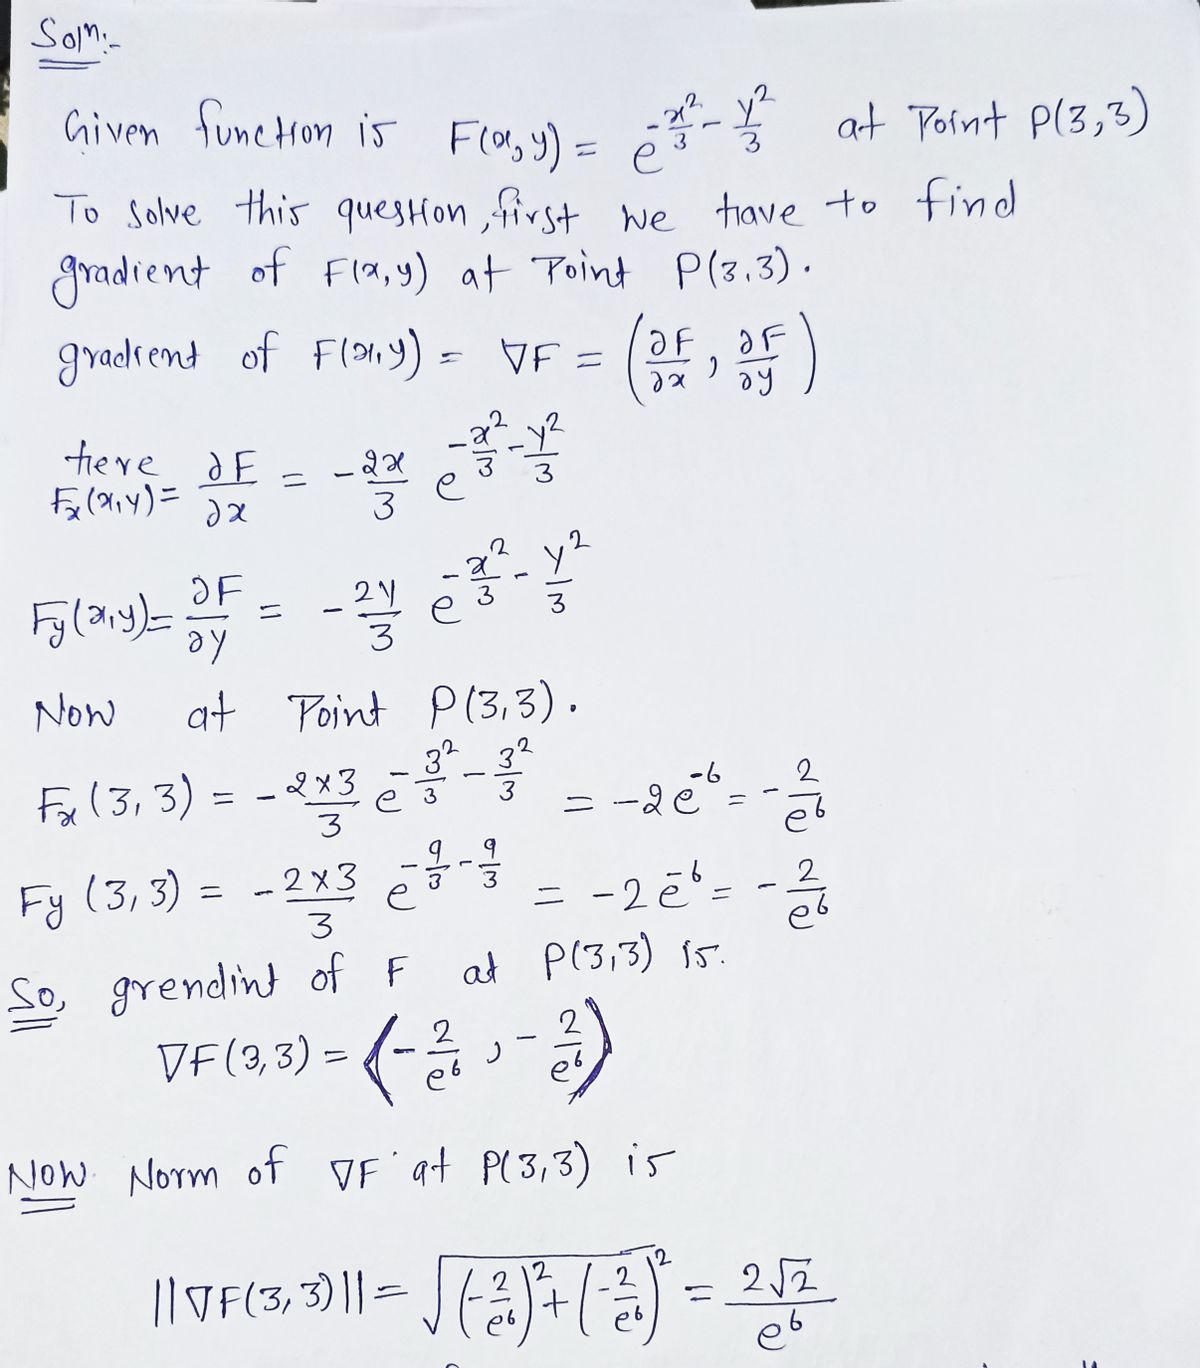 Soln:-
Given function is F(x,y) = e^{-x²/3 - y²/3} at Point P(3,3)
To solve this question, first we have to find
gradient of F(x,y) at Point P(3,3).
gradient of F(x,y) = ∇F = (∂F/∂x , ∂F/∂y)
here
Fx(x,y) = ∂F/∂x = -2x/3 e^{-x²/3 - y²/3}
Fy(x,y) = ∂F/∂y = -2y/3 e^{-x²/3 - y²/3}
Now at Point P(3,3).
Fx(3,3) = -2×3/3 e^{-3²/3 - 3²/3} = -2e^{-6} = -2/e^6
Fy(3,3) = -2×3/3 e^{-9/3 - 9/3} = -2e^{-6} = -2/e^6
So, grendint of F at P(3,3) is.
∇F(3,3) = (-2/e^6 , -2/e^6)
Now Norm of ∇F at P(3,3) is
||∇F(3,3)|| = √((-2/e^6)² + (-2/e^6)²) = 2√2/e^6